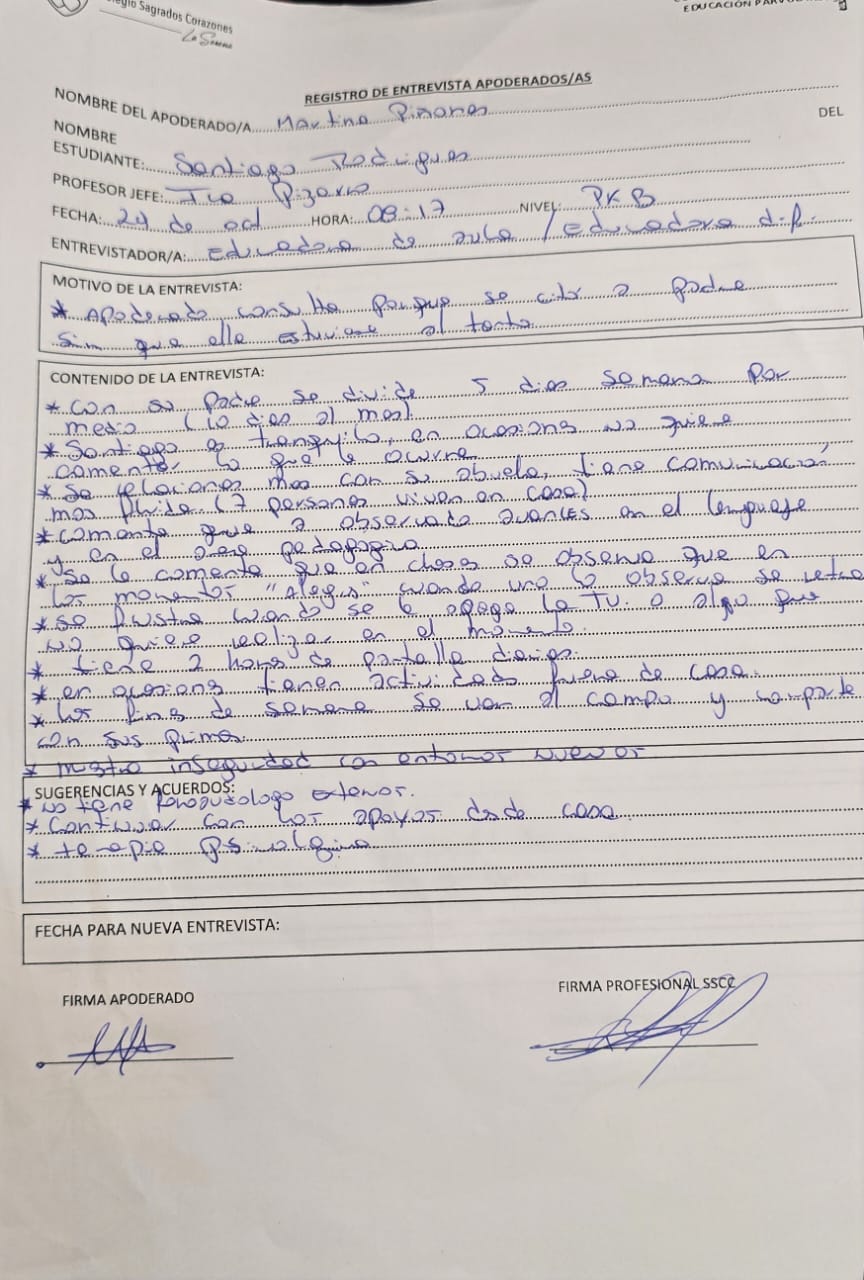 Sagrados Corazones
La Serena
REGISTRO DE ENTREVISTA APODERADOS/AS
NOMBRE DEL APODERADO/A Martina Piñones
NOMBRE DEL
ESTUDIANTE: Santiago Rodrigues
PROFESOR JEFE: Pizarro
FECHA: 24 de oct HORA: 08:17 NIVEL: PKB
ENTREVISTADOR/A: Educadora de aula / Educadora d.f.
MOTIVO DE LA ENTREVISTA:
* Apoderado consulta porque se citó a padre
sin que ella estuviese al tanto
CONTENIDO DE LA ENTREVISTA:
* con su padre se divide 5 dias semana por
medio (10 dias al mes)
* Santiago es tranquilo, en ocasiones no quiere
comentar lo que le ocurre
* se relaciona mas con su abuela, tiene comunicación
mas fluida (7 personas viven en casa)
* comenta que a observado avances en el lenguaje
y en el area pedagogica
* se le comenta que en clases se observa que en
los momentos "alegres" cuando uno lo observa se retrae
* se frustra cuando se le apaga la TV. o algo que
no quiere realizar en el momento.
* tiene 2 horas de pantalla diarias.
* en ocasiones tienen actividades fuera de casa.
* los fines de semana se van al campo y comparte
con sus primos.
* muestra inseguridad con entornos nuevos
SUGERENCIAS Y ACUERDOS:
* no tiene fonoaudologo externos.
* continuar con los apoyos desde casa
* terapia
FECHA PARA NUEVA ENTREVISTA:
FIRMA APODERADO FIRMA PROFESIONAL SSCC